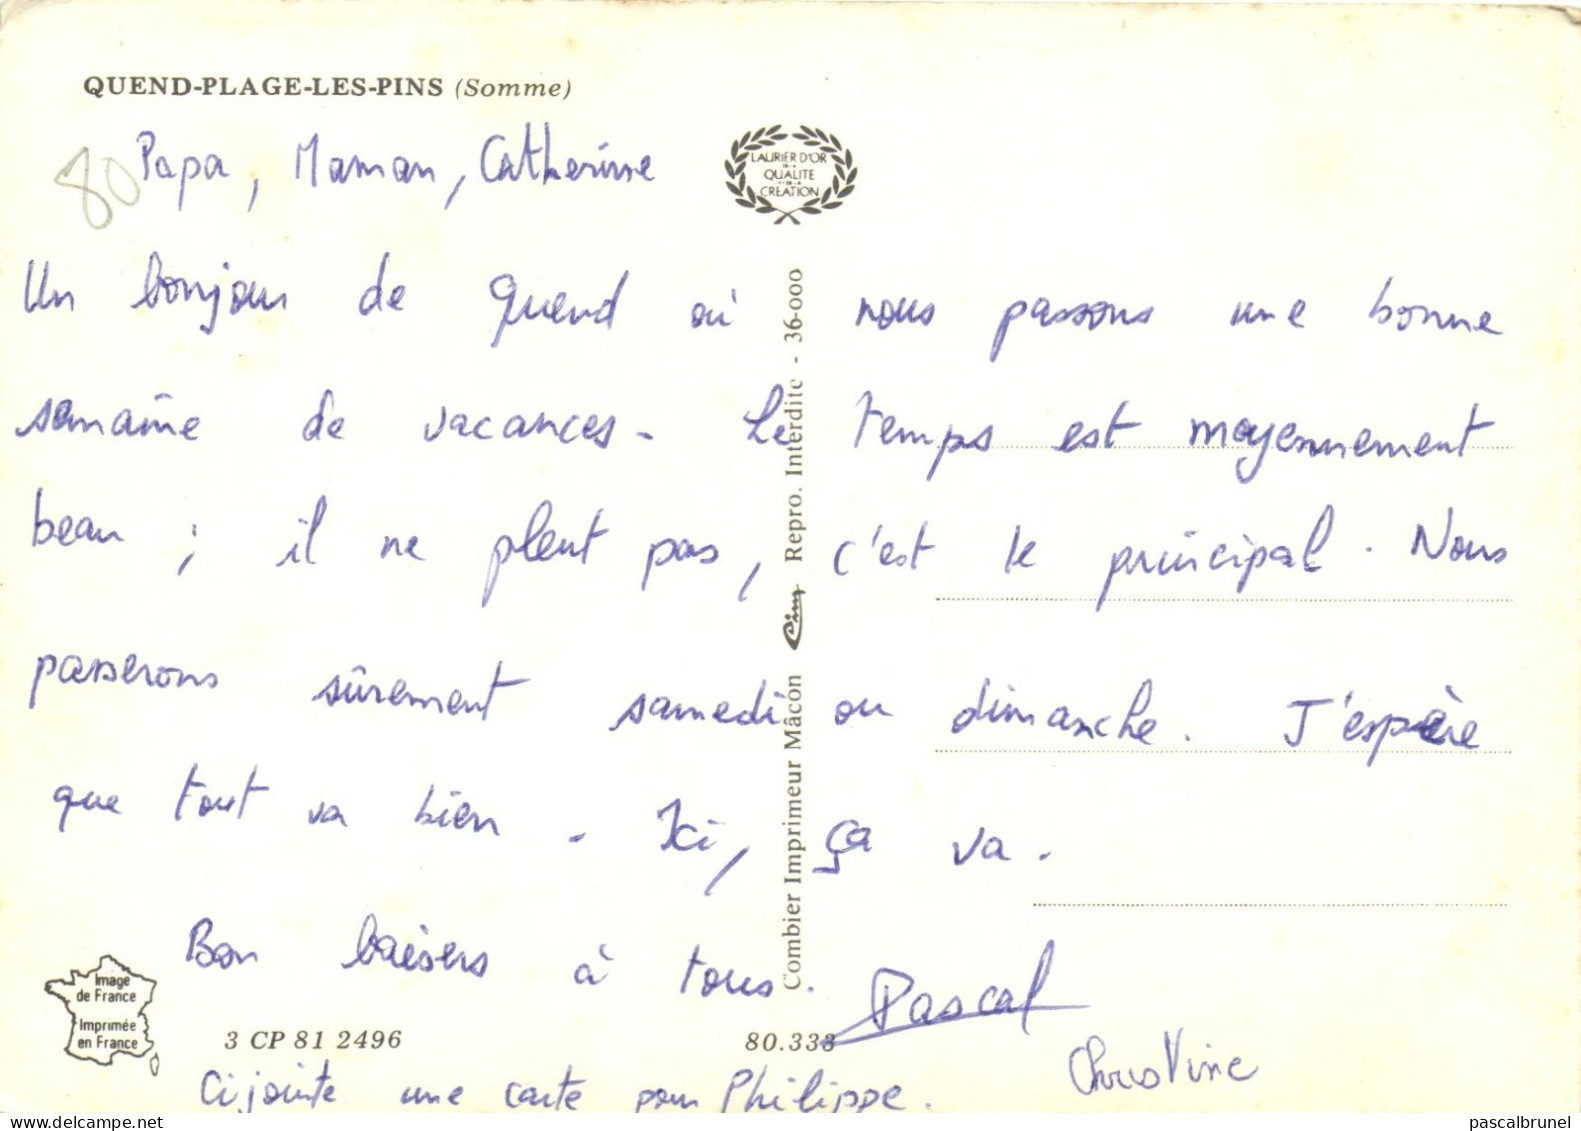 QUEND-PLAGE-LES-PINS (Somme)
80
Papa, Maman, Catherine
LAURIER D'OR
DE LA
QUALITE
DE LA
CREATION
Un bonjour de Quend où nous passons une bonne
semaine de vacances. Le temps est moyennement
beau ; il ne pleut pas, c'est le principal. Nous
passerons sûrement samedi ou dimanche. J'espère
que tout va bien. Ici, ça va.
Bon baisers à tous.
Pascal
Christine
Combier Imprimeur Mâcon Cim Repro. Interdite - 36-000
Image
de France
Imprimée
en France
3 CP 81 2496
80.333
Ci jointe une carte pour Philippe.
pascalbrunel